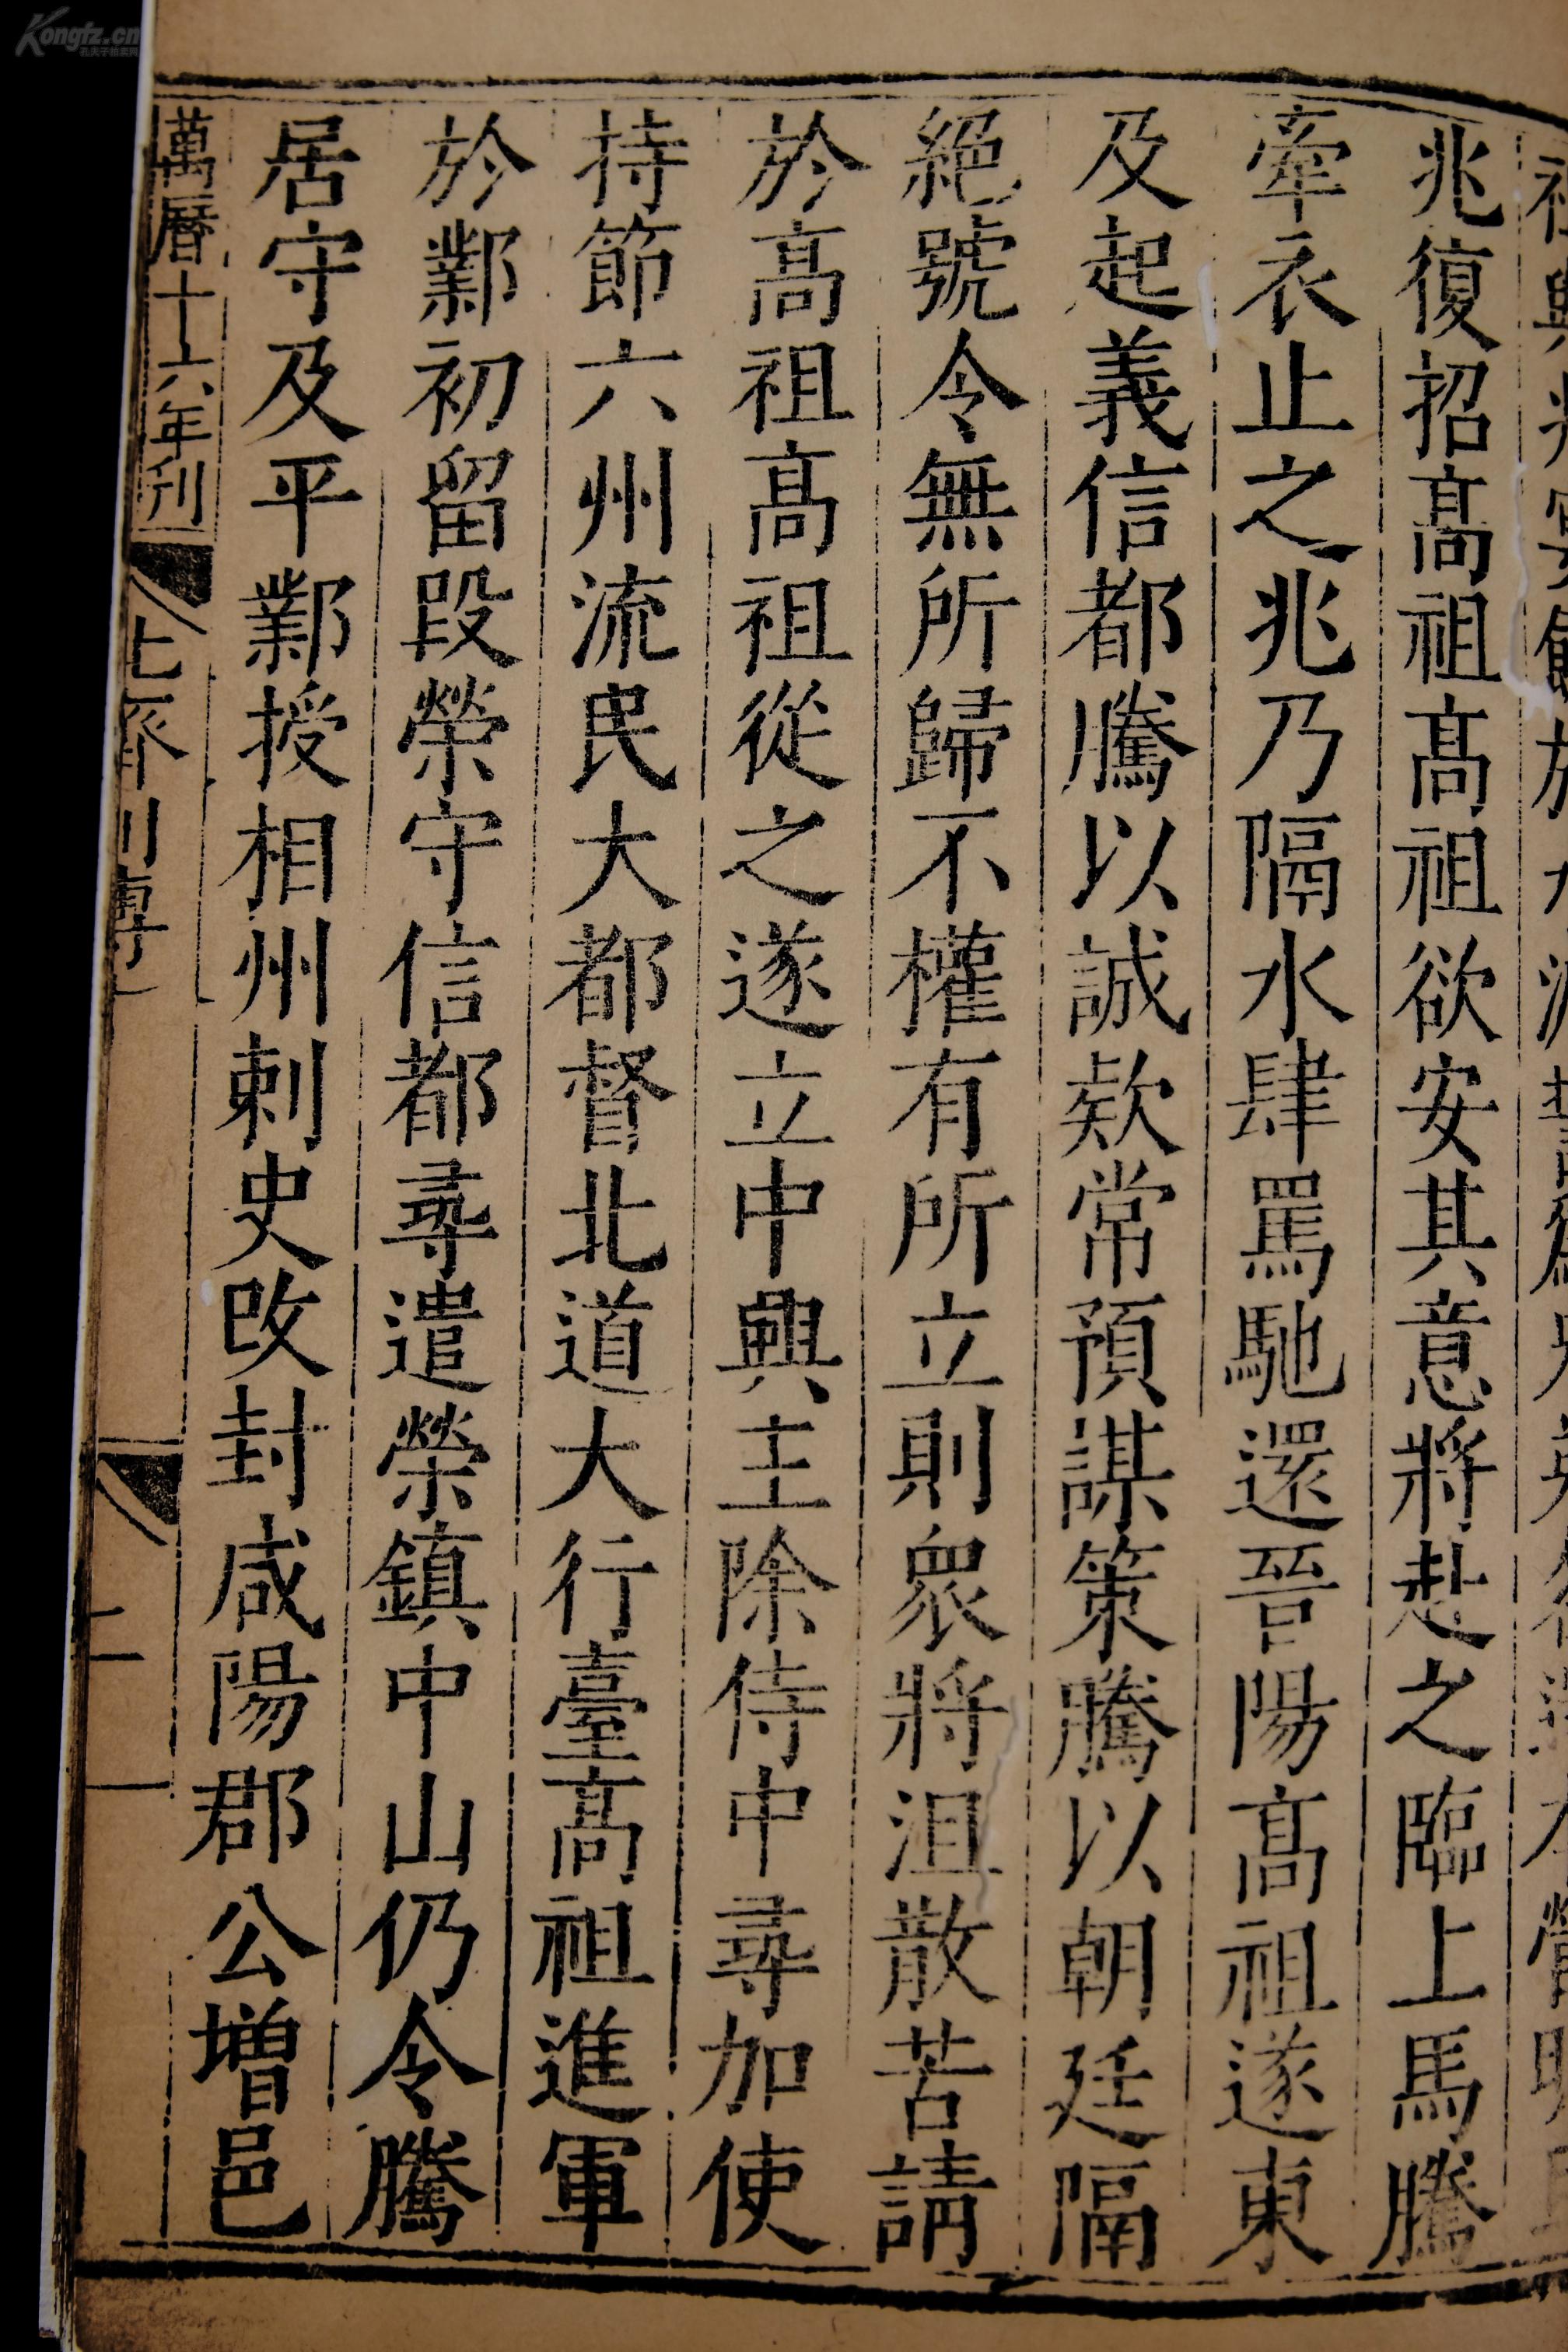 兆復招髙祖髙祖欲安其意將赴之臨上馬騰
牽衣止之兆乃隔水肆罵馳還晉陽髙祖遂東
及起義信都騰以誠欵常預謀策騰以朝廷隔
絕號令無所歸不權有所立則眾將沮散苦請
於髙祖髙祖從之遂立中興主除侍中尋加使
持節六州流民大都督北道大行臺髙祖進軍
於鄴初留段榮守信都尋遣榮鎮中山仍令騰
居守及平鄴授相州刺史改封咸陽郡公增邑
萬曆十六年刊
二
Kongfz.cn